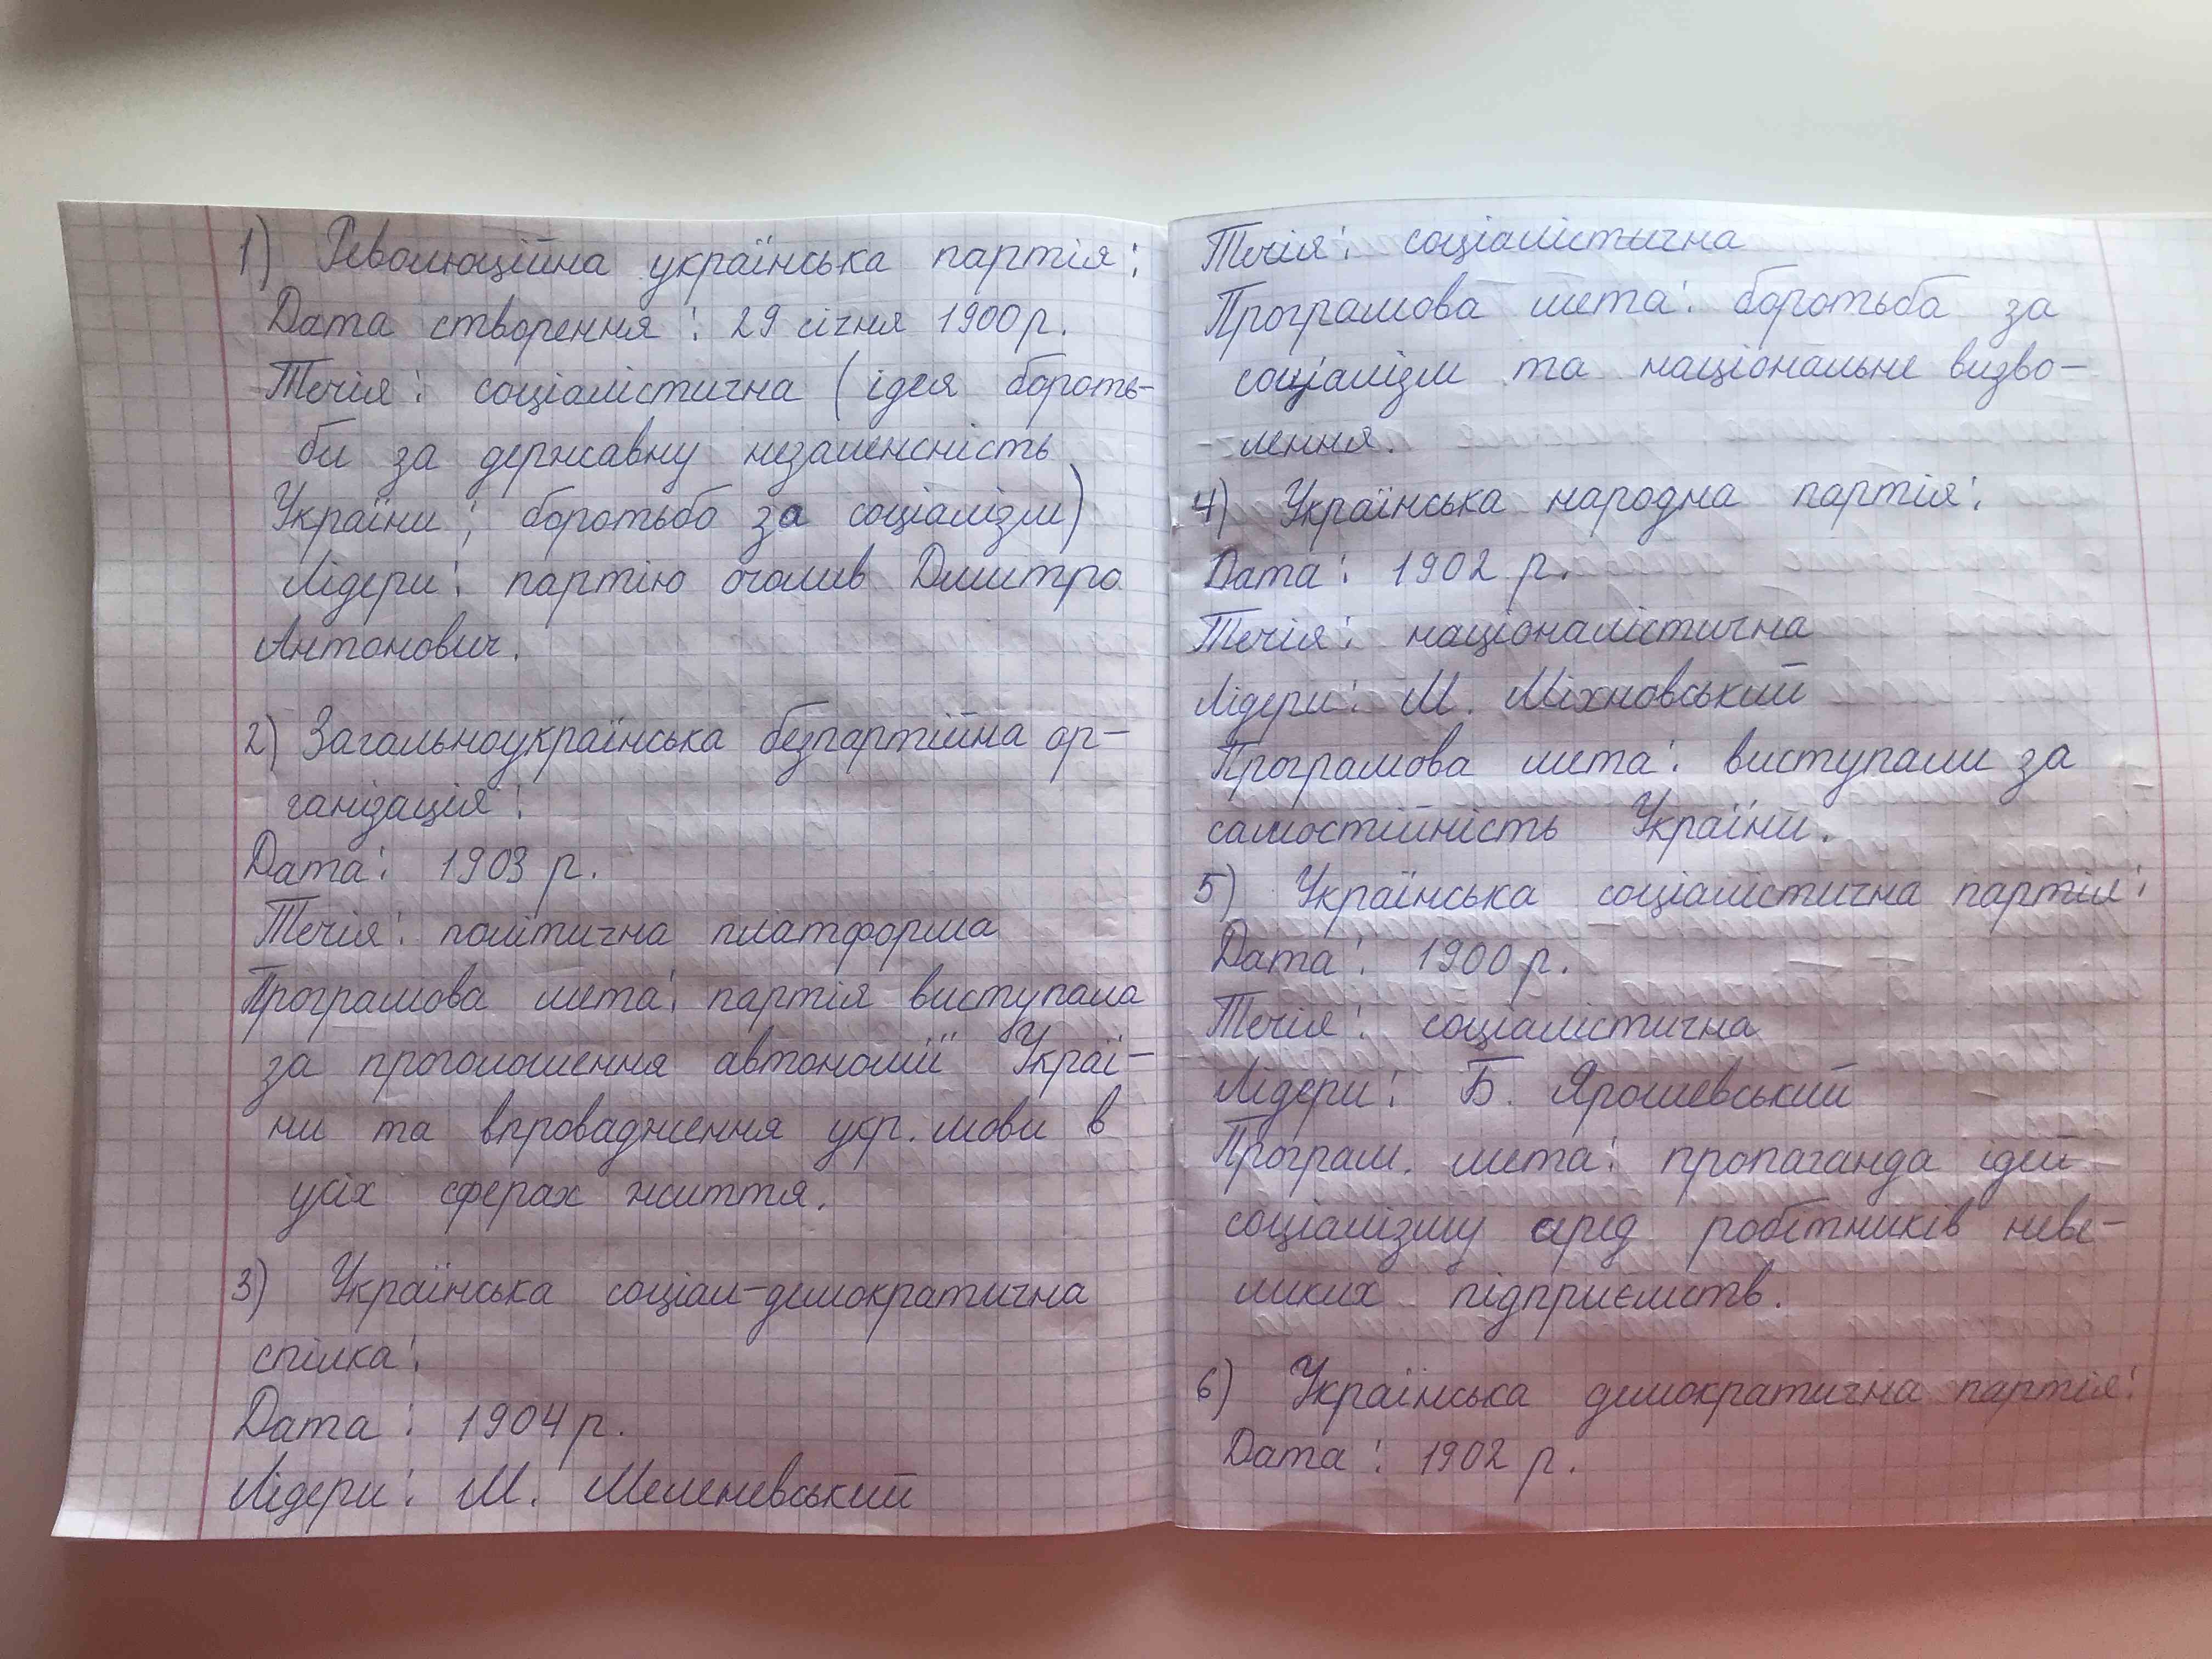 1) Революційна українська партія:
Дата створення: 29 січня 1900 р.
Течія: соціалістична (ідея бороть-
би за державну незалежність
України; боротьбо за соціалізм)
Лідери: партію очолив Дмитро
Антонович.
2) Загальноукраїнська безпартійна ор-
ганізація:
Дата: 1903 р.
Течія: політична платформа
Програмова мета: партія виступала
за проголошення автономії Украї-
ни та впровадження укр. мови в
усіх сферах життя.
3) Українська соціал-демократична
спілка:
Дата: 1904 р.
Лідери: М. Меленевський
Течія: соціалістична
Програмова мета: боротьба за
соціалізм та національне визво-
лення.
4) Українська народна партія:
Дата: 1902 р.
Течія: націоналістична
Лідери: М. Міхновський
Програмова мета: виступали за
самостійність України.
5) Українська соціалістична партія:
Дата: 1900 р.
Течія: соціалістична
Лідери: Б. Ярошевський
Програм. мета: пропаганда ідей
соціалізму серед робітників неве-
ликих підприємств.
6) Українська демократична партія:
Дата: 1902 р.